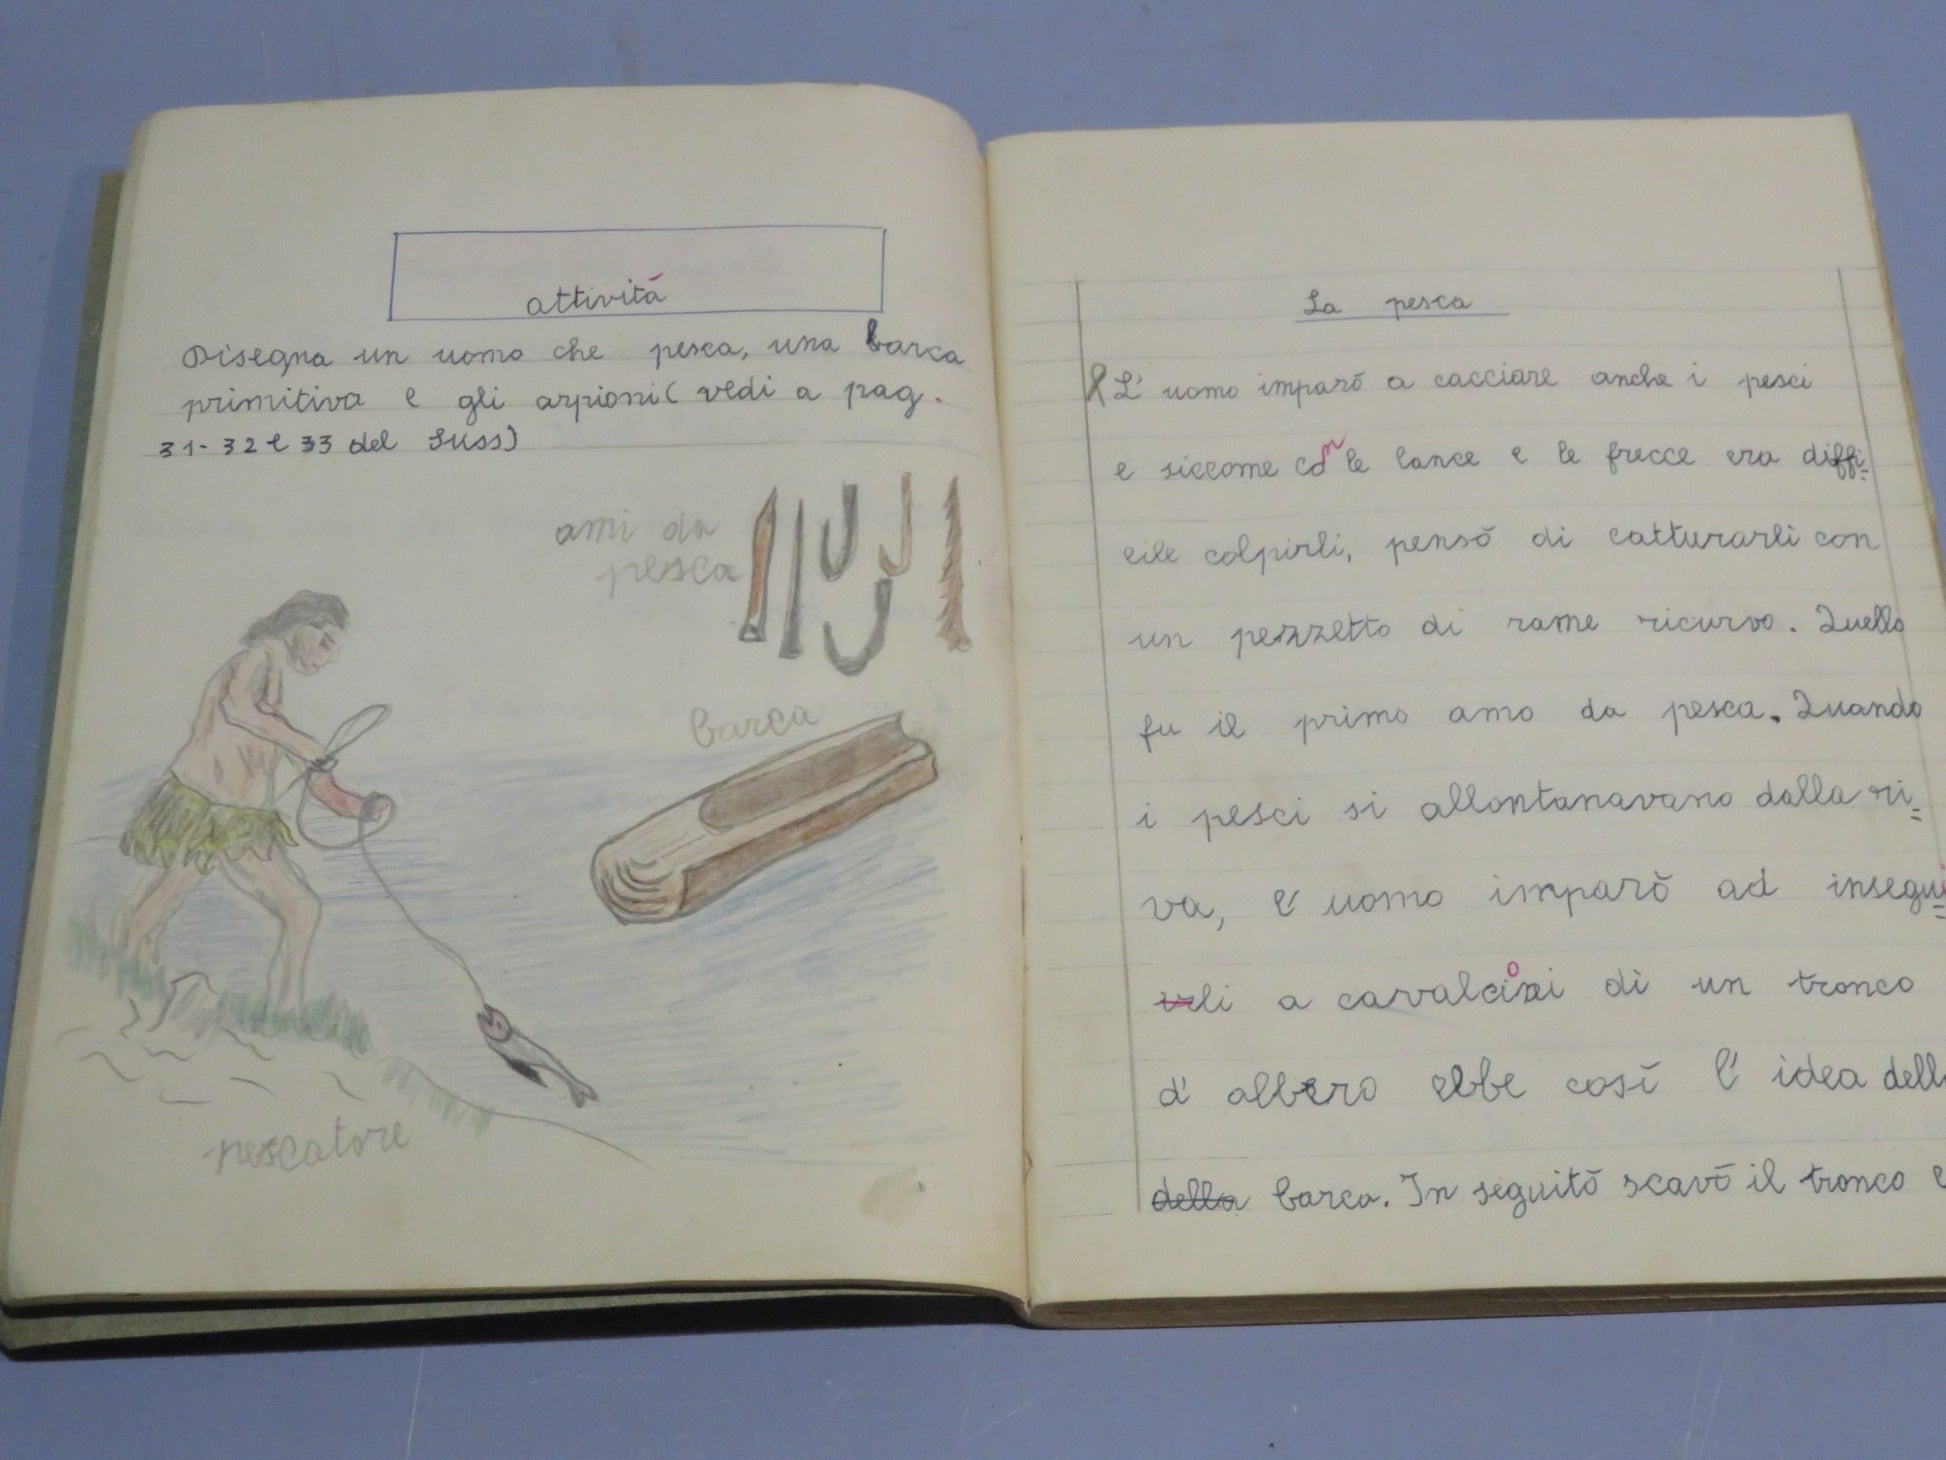 attivitá
Disegna un uomo che pesca, una barca
primitiva e gli arpioni ( vedi a pag.
31-32 e 33 del Suss)
ami da
pesca
barca
pescatore
La pesca
L' uomo imparò a cacciare anche i pesci
e siccome con le lance e le frecce era diffi=
cile colpirli, pensò di catturarli con
un pezzetto di rame ricurvo. Quello
fu il primo amo da pesca. Quando
i pesci si allontanavano dalla ri=
va, l' uomo imparò ad insegui=
li a cavalcioni di un tronco
d' albero ebbe così l' idea della
della barca. In seguitò scavò il tronco e